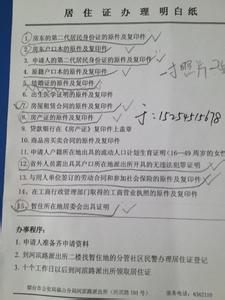 居住证办理明白纸
1、房东的第二代居民身份证的原件及复印件
2、房东户口本的原件及复印件
3、申请人的第二代居民身份证的原件及复印件
4、原籍户口本的原件及复印件
5、结婚证的原件及复印件
一寸照片
6、出生医学证明的原件及复印件
7、房屋租赁合同的原件及复印件
8、房产证的原件及复印件
9、贷款银行在《房产证》复印件上盖章
10、商品房买卖合同的原件及复印件
11、申请人户籍所在地出具的流动人口计划生育证明(16—49周岁的女性
12、省外人员需出具其户口所在地派出所开具的无违法犯罪证明
13、与用人单位签订的劳动合同和参加社会保险的原件及复印件
14、在工商行政管理部门取得的工商营业执照的原件及复印件
15、暂住所在地居委会出具证明
办事程序:
1、申请人准备齐申请资料
2、到河滨路派出所二楼找暂住地的分管社区民警办理居住证登记
3、十个工作日以后到河滨路派出所领取居住证